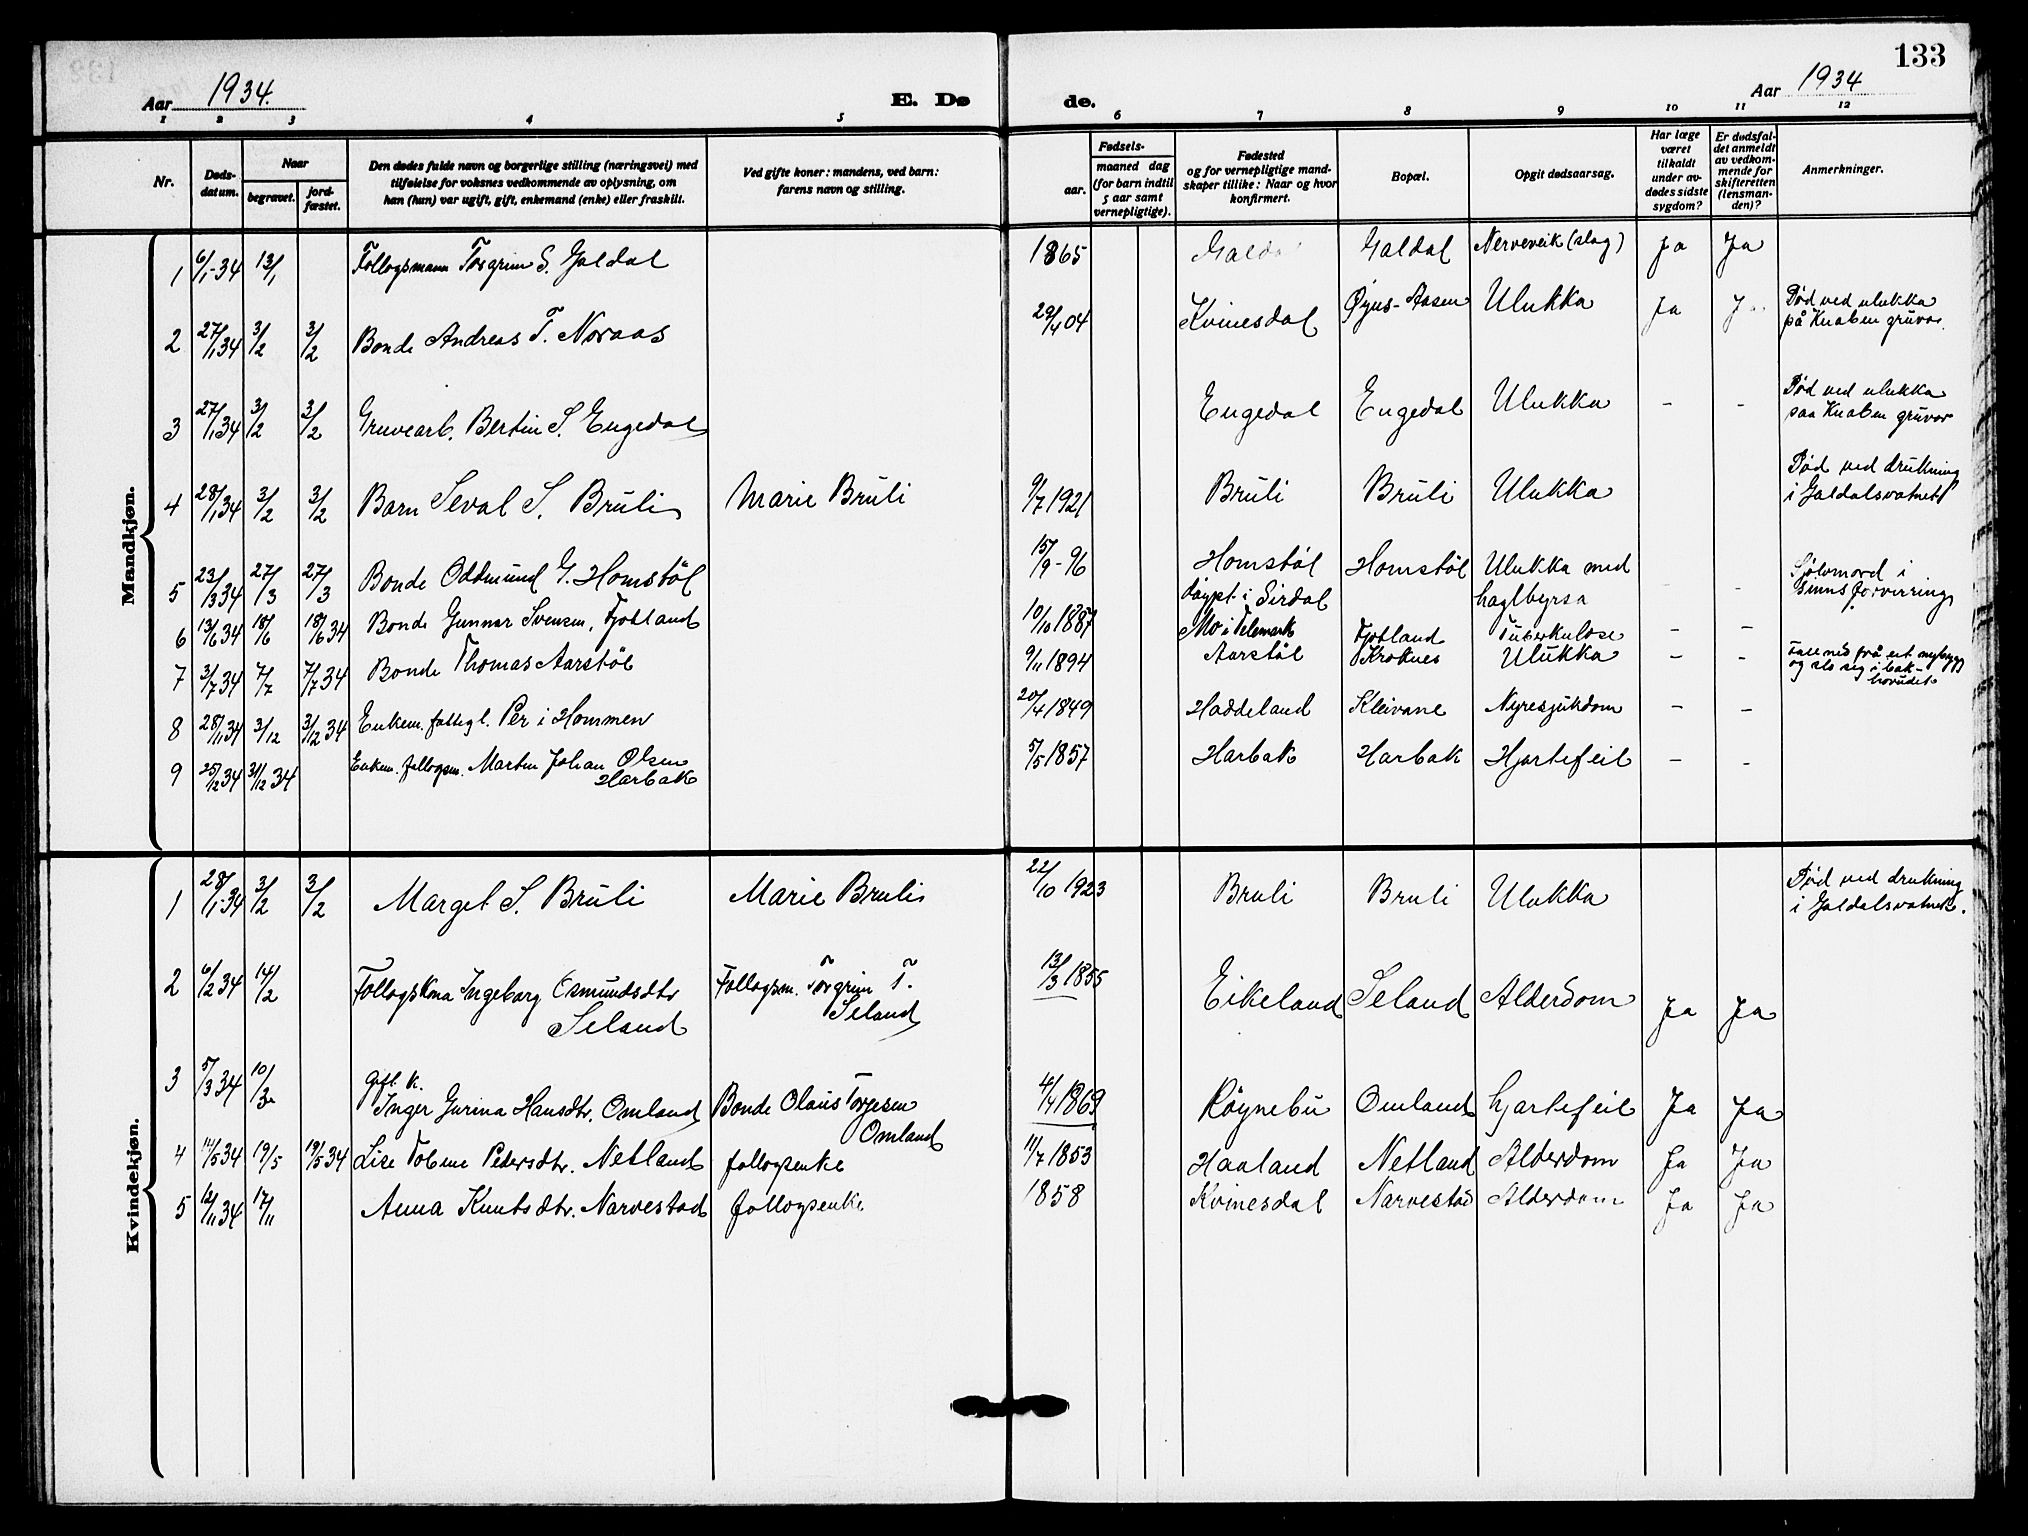 133
Aar 1934. E. Dø de. Aar 1934
1 2 3 4 5 6 7 8 9 10 11 12
Nr.
Døds-
datum.
Naar
begravet.
jord-
fæstet.
Den dødes fulde navn og borgerlige stilling (næringsvei) med
tilføielse for voksnes vedkommende av oplysning, om
han (hun) var ugift, gift, enkemand (enke) eller fraskilt.
Ved gifte koner: mandens, ved barn:
farens navn og stilling.
Fødsels-
aar.
maaned dag
(for barn indtil
5 aar samt
vernepligtige).
Fødested
og for vernepligtige mand-
skaper tillike: Naar og hvor
konfirmert.
Bopæl.
Opgit dødsaarsag.
Har læge
været
tilkaldt
under av-
dødes sidste
sygdom?
Er dødsfal-
det anmeldt
av vedkom-
mende for
skifteretten
(lensman-
den)?
Anmerkninger.
Mandkjøn.
1 6/1-34 13/1 Follogsmann Torgrim S. Galdal 1865 Galdal Nerveveik (slag) Ja Ja
2 27/1 34 3/2 3/2 Bonde Andreas T. Noraas 29/4 04 Kvinesdal Øyus-Aasen Ulukka Ja Død ved ulukka
på Knaben gruvor.
3 27/1 34 3/2 3/2 Gruvearb. Bertin S. Eugedal Eugedal Eugedal Ulukka - - Død ved ulukka
paa Knaben gruvor
4 28/1 34 3/2 3/2 Barn Seval S. Brüli Marie Brüli 9/7 1921 Brüli Brüli Ulukka Død ved drukning
i Galdalsvatnet
5 23/3 34 27/3 27/3 Bonde Oddmund G. Homstøl 15/9-96 Homstøl Homstøl Ulukka med
døypt i Sirdal haglbyrsa - - Sjølvmord i
Sinnsforvirring
6 13/6 34 18/6 18/6 34 Bonde Gunnar Svensen, Fjotland 10/10 1887 Mo i Telemark Fjotland Tuberkulose - -
7 3/7 34 7/7 7/7 34 Bonde Thomas Aarstøl 9/11 1894 Aarstøl Kroknes Ulukka - - Fall ned frå eit nybygg
og slo sig i bak-
hovudet
8 28/11 34 3/12 3/12 34 Enkem. follogl. Per i Hommen 20/4 1849 Haddeland Kleivane Nyresjukdom - -
9 25/12 34 31/12 34 Enkem. follogsm. Martin Johan Olsen
Harbak 5/5 1857 Harbak Harbak Hjartefeil - -
Kvindekjøn.
1 28/1-34 3/2 3/2 Marget S. Brüli Marie Bruli 22/10 1923 Bruli Bruli Ulukka Død ved drukning
i Galdalsvatnet.
2 6/2 34 14/2 Follogskona Ingeborg Osmundsdtr
Seland Follogsm. Torgrim T.
Seland 13/3 1855 Eikeland Seland Alderdom Ja Ja
3 5/3 34 10/3 Gift k.
Inger Gurina Hansdtr. Omland Bonde Olaus Torjesen
Omland 4/4 1869 Røynebu Omland hjartefeil Ja Ja
4 34 19/5 19/5 34 Lise Tobine Pedersdtr. Netland follogsenke 11/7 1853 Haaland Netland Alderdom Ja Ja
5 12/11 34 17/11 Anna Knutsdtr. Narvestad follogsenke 1858 Kvinesdal Narvestad Alderdom Ja Ja